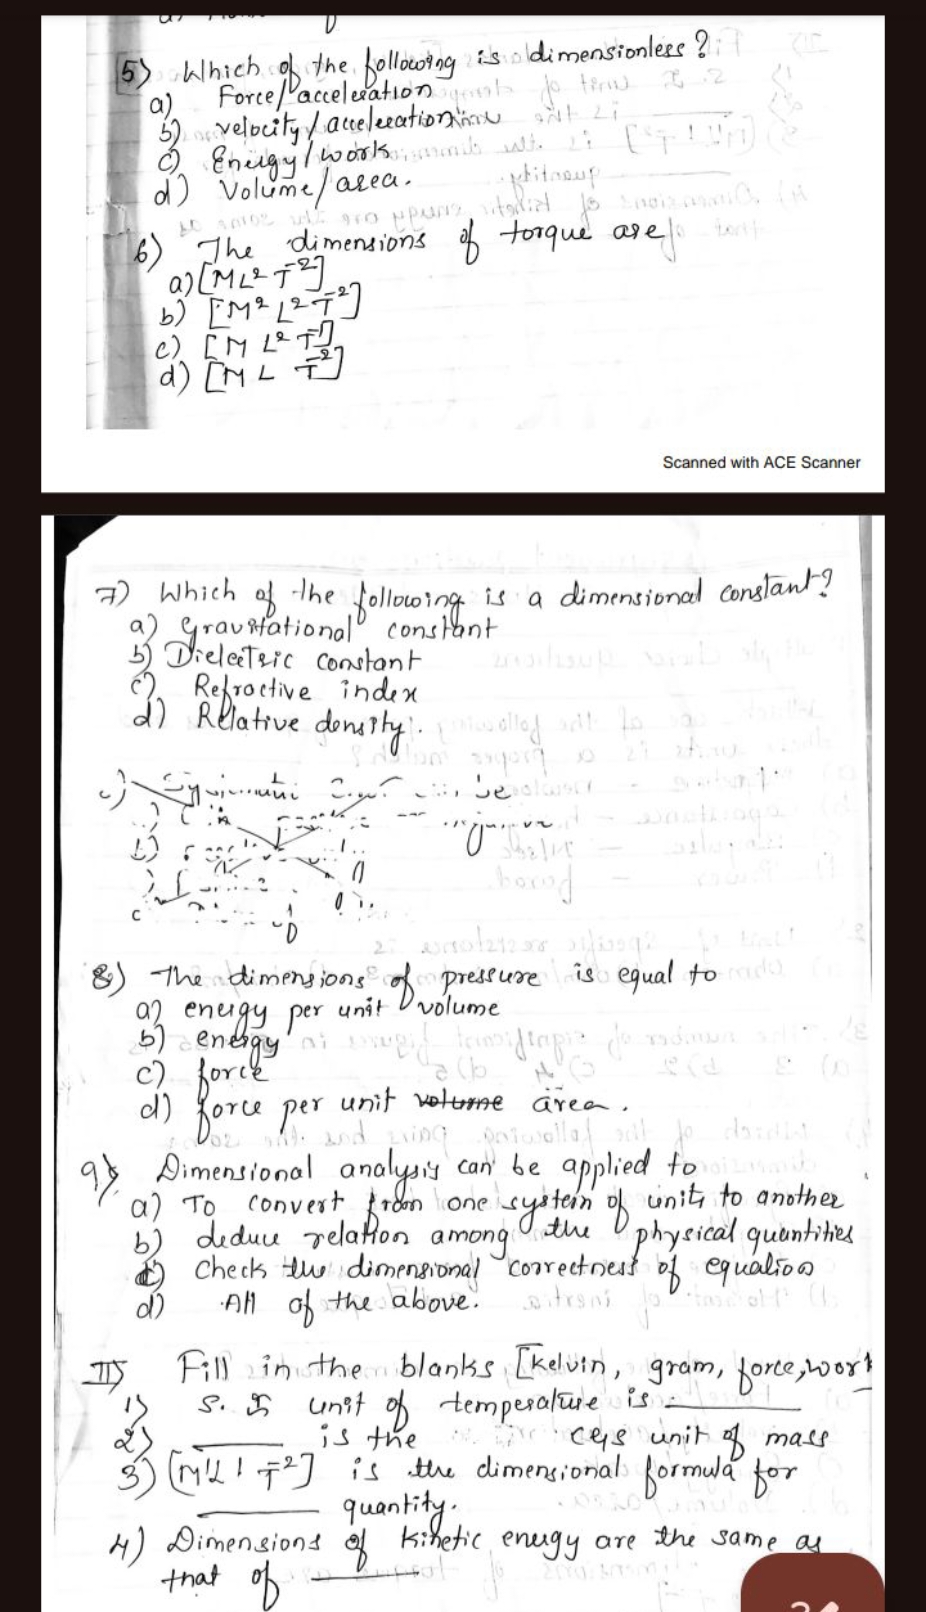 5) Which of the following is dimensionless?
a) Force/acceleration
b) velocity/acceleration
c) Energy/work
d) Volume/area.
6) The dimensions of torque are
a) [ML² T⁻²]
b) [M² L² T⁻²]
c) [M L² T⁻¹]
d) [M L T⁻²]
Scanned with ACE Scanner
7) Which of the following is a dimensional constant?
a) Gravitational constant
b) Dielectric constant
c) Refractive index
d) Relative density.
8) The dimensions of pressure is equal to
a) energy per unit volume
b) energy
c) force
d) force per unit volume area.
9) Dimensional analysis can be applied to
a) To convert from one system of units to another
b) deduce relation among the physical quantities
c) Check the dimensional correctness of equation
d) All of the above.
II) Fill in the blanks [kelvin, gram, force, work
1) S. I unit of temperature is
2) is the cgs unit of mass
3) [M¹L¹T⁻²] is the dimensional formula for
quantity.
4) Dimensions of kinetic energy are the same as
that of